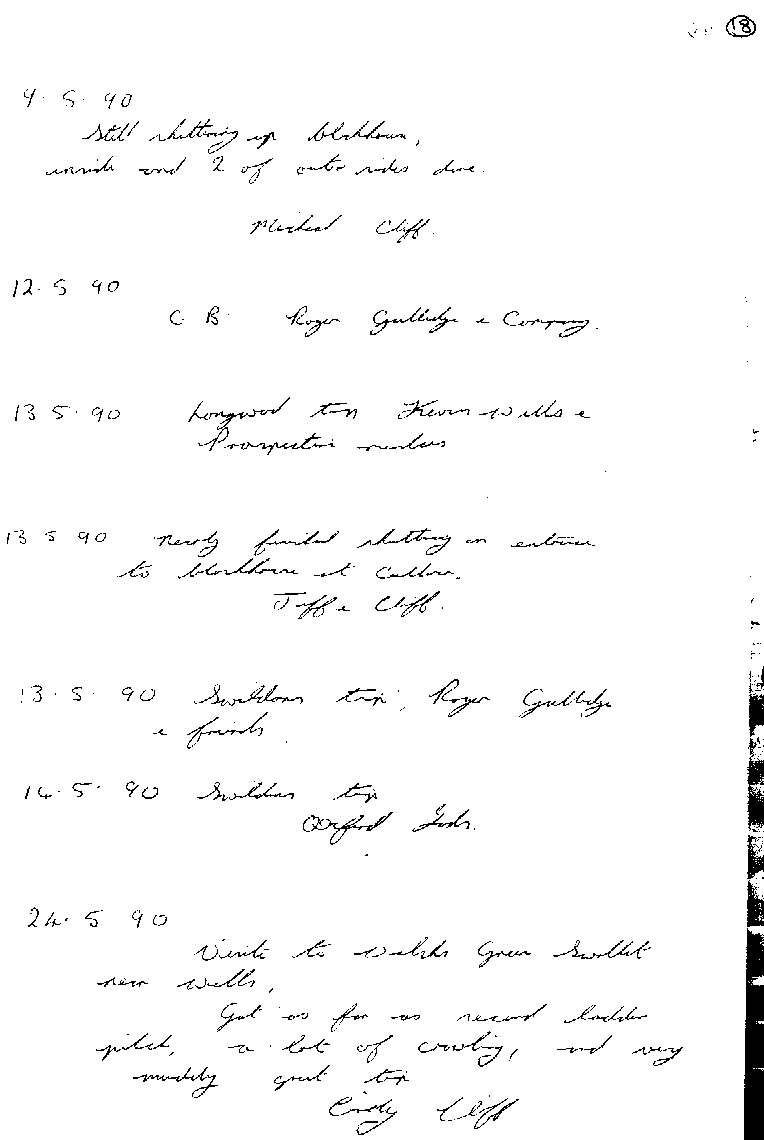 18
9.5.90
Still shuttering up blockhouse,
inside and 2 of outer sides done.
Michael Cliff.
12.5 90
C B. Roger Gullidge & Company.
13 5.90 Longwood trip Kevin Wills &
Prospective members
13 5 90 Nearly finished shuttering on entrance
to blockhouse at Cuthbu.
Jeff & Cliff.
13.5.90 Swildons trip, Roger Gullidge
& friends
14.5.90 Swildons trip
Oxford
24.5 90
Visit to Welshs Green Swallet
near Wells,
Got as far as second ladder
pitch, a lot of crawling, and very
muddy great trip
Cindy Cliff